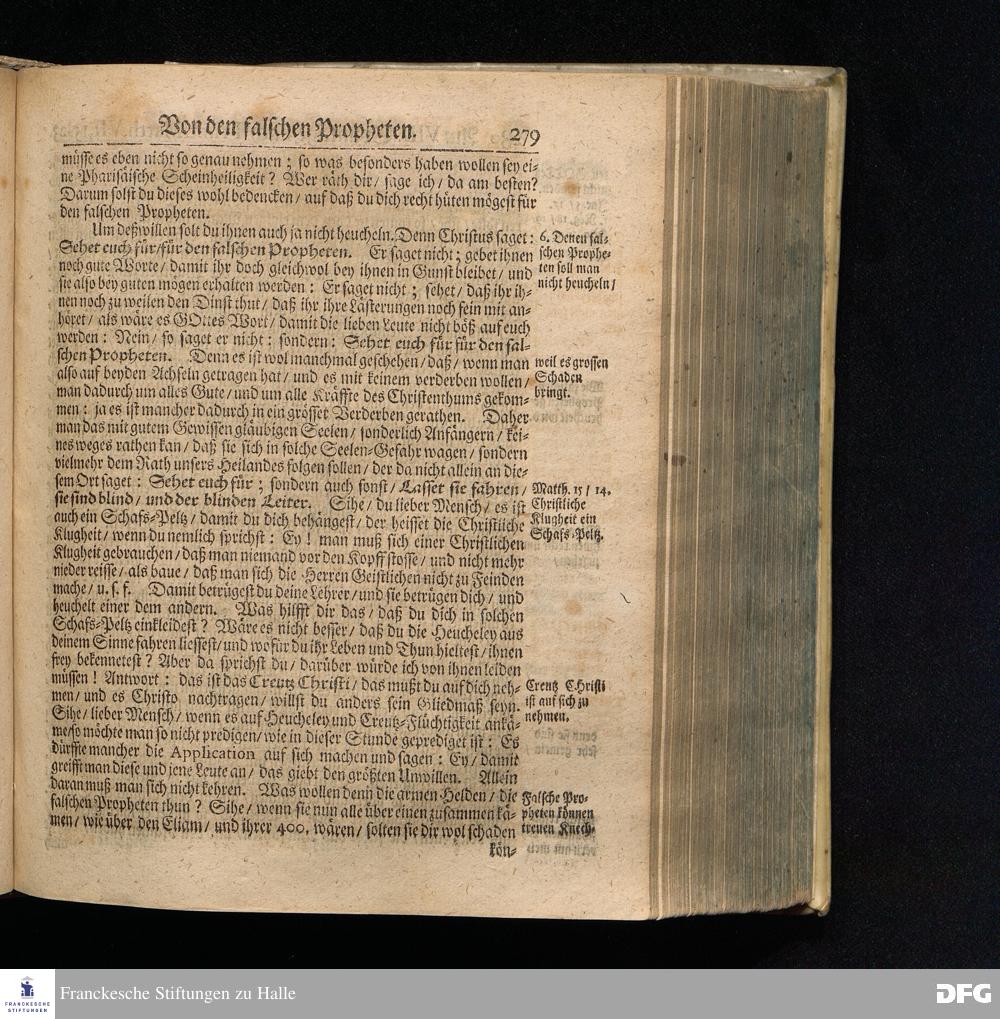 Von den falschen Propheten. 279
müsse es eben nicht so genau nehmen; so was besonders haben wollen sey ei-
ne Pharisäische Scheinheiligkeit? Wer räth dir/ sage ich/ da am besten?
Darum solst du dieses wohl bedencken/ auf daß du dich recht hüten mögest für
den falschen Propheten.
Um deßwillen solt du ihnen auch ja nicht heucheln. Denn Christus saget:
Sehet euch für/ für den falschen Propheten. Er saget nicht; gebet ihnen
noch gute Worte/ damit ihr doch gleichwol bey ihnen in Gunst bleibet/ und
sie also bey guten mögen erhalten werden: Er saget nicht; sehet/ daß ihr ih-
nen noch zu weilen den Dinst thut/ daß ihr ihre Lästerungen noch fein mit an-
höret/ als wäre es GOttes Wort/ damit die lieben Leute nicht böß auf euch
werden: Nein/ so saget er nicht: sondern: Sehet euch für für den fal-
schen Propheten. Denn es ist wol manchmal geschehen/ daß/ wenn man
also auf beyden Achseln getragen hat/ und es mit keinem verderben wollen/
man dadurch um alles Gute/ und um alle Kräffte des Christenthums gekom-
men: ja es ist mancher dadurch in ein grösset Verderben gerathen. Daher
man das mit gutem Gewissen gläubigen Seelen/ sonderlich Anfängern/ kei-
nes weges rathen kan/ daß sie sich in solche Seelen-Gefahr wagen/ sondern
vielmehr dem Rath unsers Heilandes folgen sollen/ der da nicht allein an die-
sem Ort saget: Sehet euch für; sondern auch sonst/ Lasset sie fahren/
sie sind blind/ und der blinden Leiter. Sihe/ du lieber Mensch/ es ist
auch ein Schafs-Peltz/ damit du dich behängest/ der heisset die Christliche
Klugheit/ wenn du nemlich sprichst: Ey! man muß sich einer Christlichen
Klugheit gebrauchen/ daß man niemand vor den Kopff stosse/ und nicht mehr
nieder reisse/ als baue/ daß man sich die Herren Geistlichen nicht zu Feinden
mache/ u. s. f. Damit betrügest du deine Lehrer/ und sie betrügen dich/ und
heuchelt einer dem andern. Was hilfft dir das/ daß du dich in solchen
Schafs-Peltz einkleidest? Wäre es nicht besser/ daß du die Heucheley aus
deinem Sinne fahren liessest/ und wofür du ihr Leben und Thun hieltest/ ihnen
frey bekennetest? Aber da sprichst du/ darüber würde ich von ihnen leiden
müssen! Antwort: das ist das Creutz Christi/ das mußt du auf dich neh-
men/ und es Christo nachtragen/ willst du anders sein Gliedmaß seyn.
Sihe/ lieber Mensch/ wenn es auf Heucheley und Creutz-Flüchtigkeit ankä-
me/ so möchte man so nicht predigen/ wie in dieser Stunde geprediget ist: Es
dürffte mancher die Application auf sich machen und sagen: Ey/ damit
greifft man diese und jene Leute an/ das giebt den größten Unwillen. Allein
daran muß man sich nicht kehren. Was wollen denn die armen Helden/ die
falschen Propheten thun? Sihe/ wenn sie nun alle über einen zusammen kä-
men/ wie über den Eliam/ und ihrer 400. wären/ solten sie dir wol schaden
kön-
6. Denen fal-
schen Prophe-
ten soll man
nicht heucheln/
weil es grossen
Schaden
bringt.
Matth. 15/ 14.
Christliche
Klugheit ein
Schafs-Peltz.
Creutz Christi
ist auf sich zu
nehmen.
Falsche Pro-
pheten können
treuen Knech-
FRANCKESCHE
STIFTUNGEN
Franckesche Stiftungen zu Halle
DFG